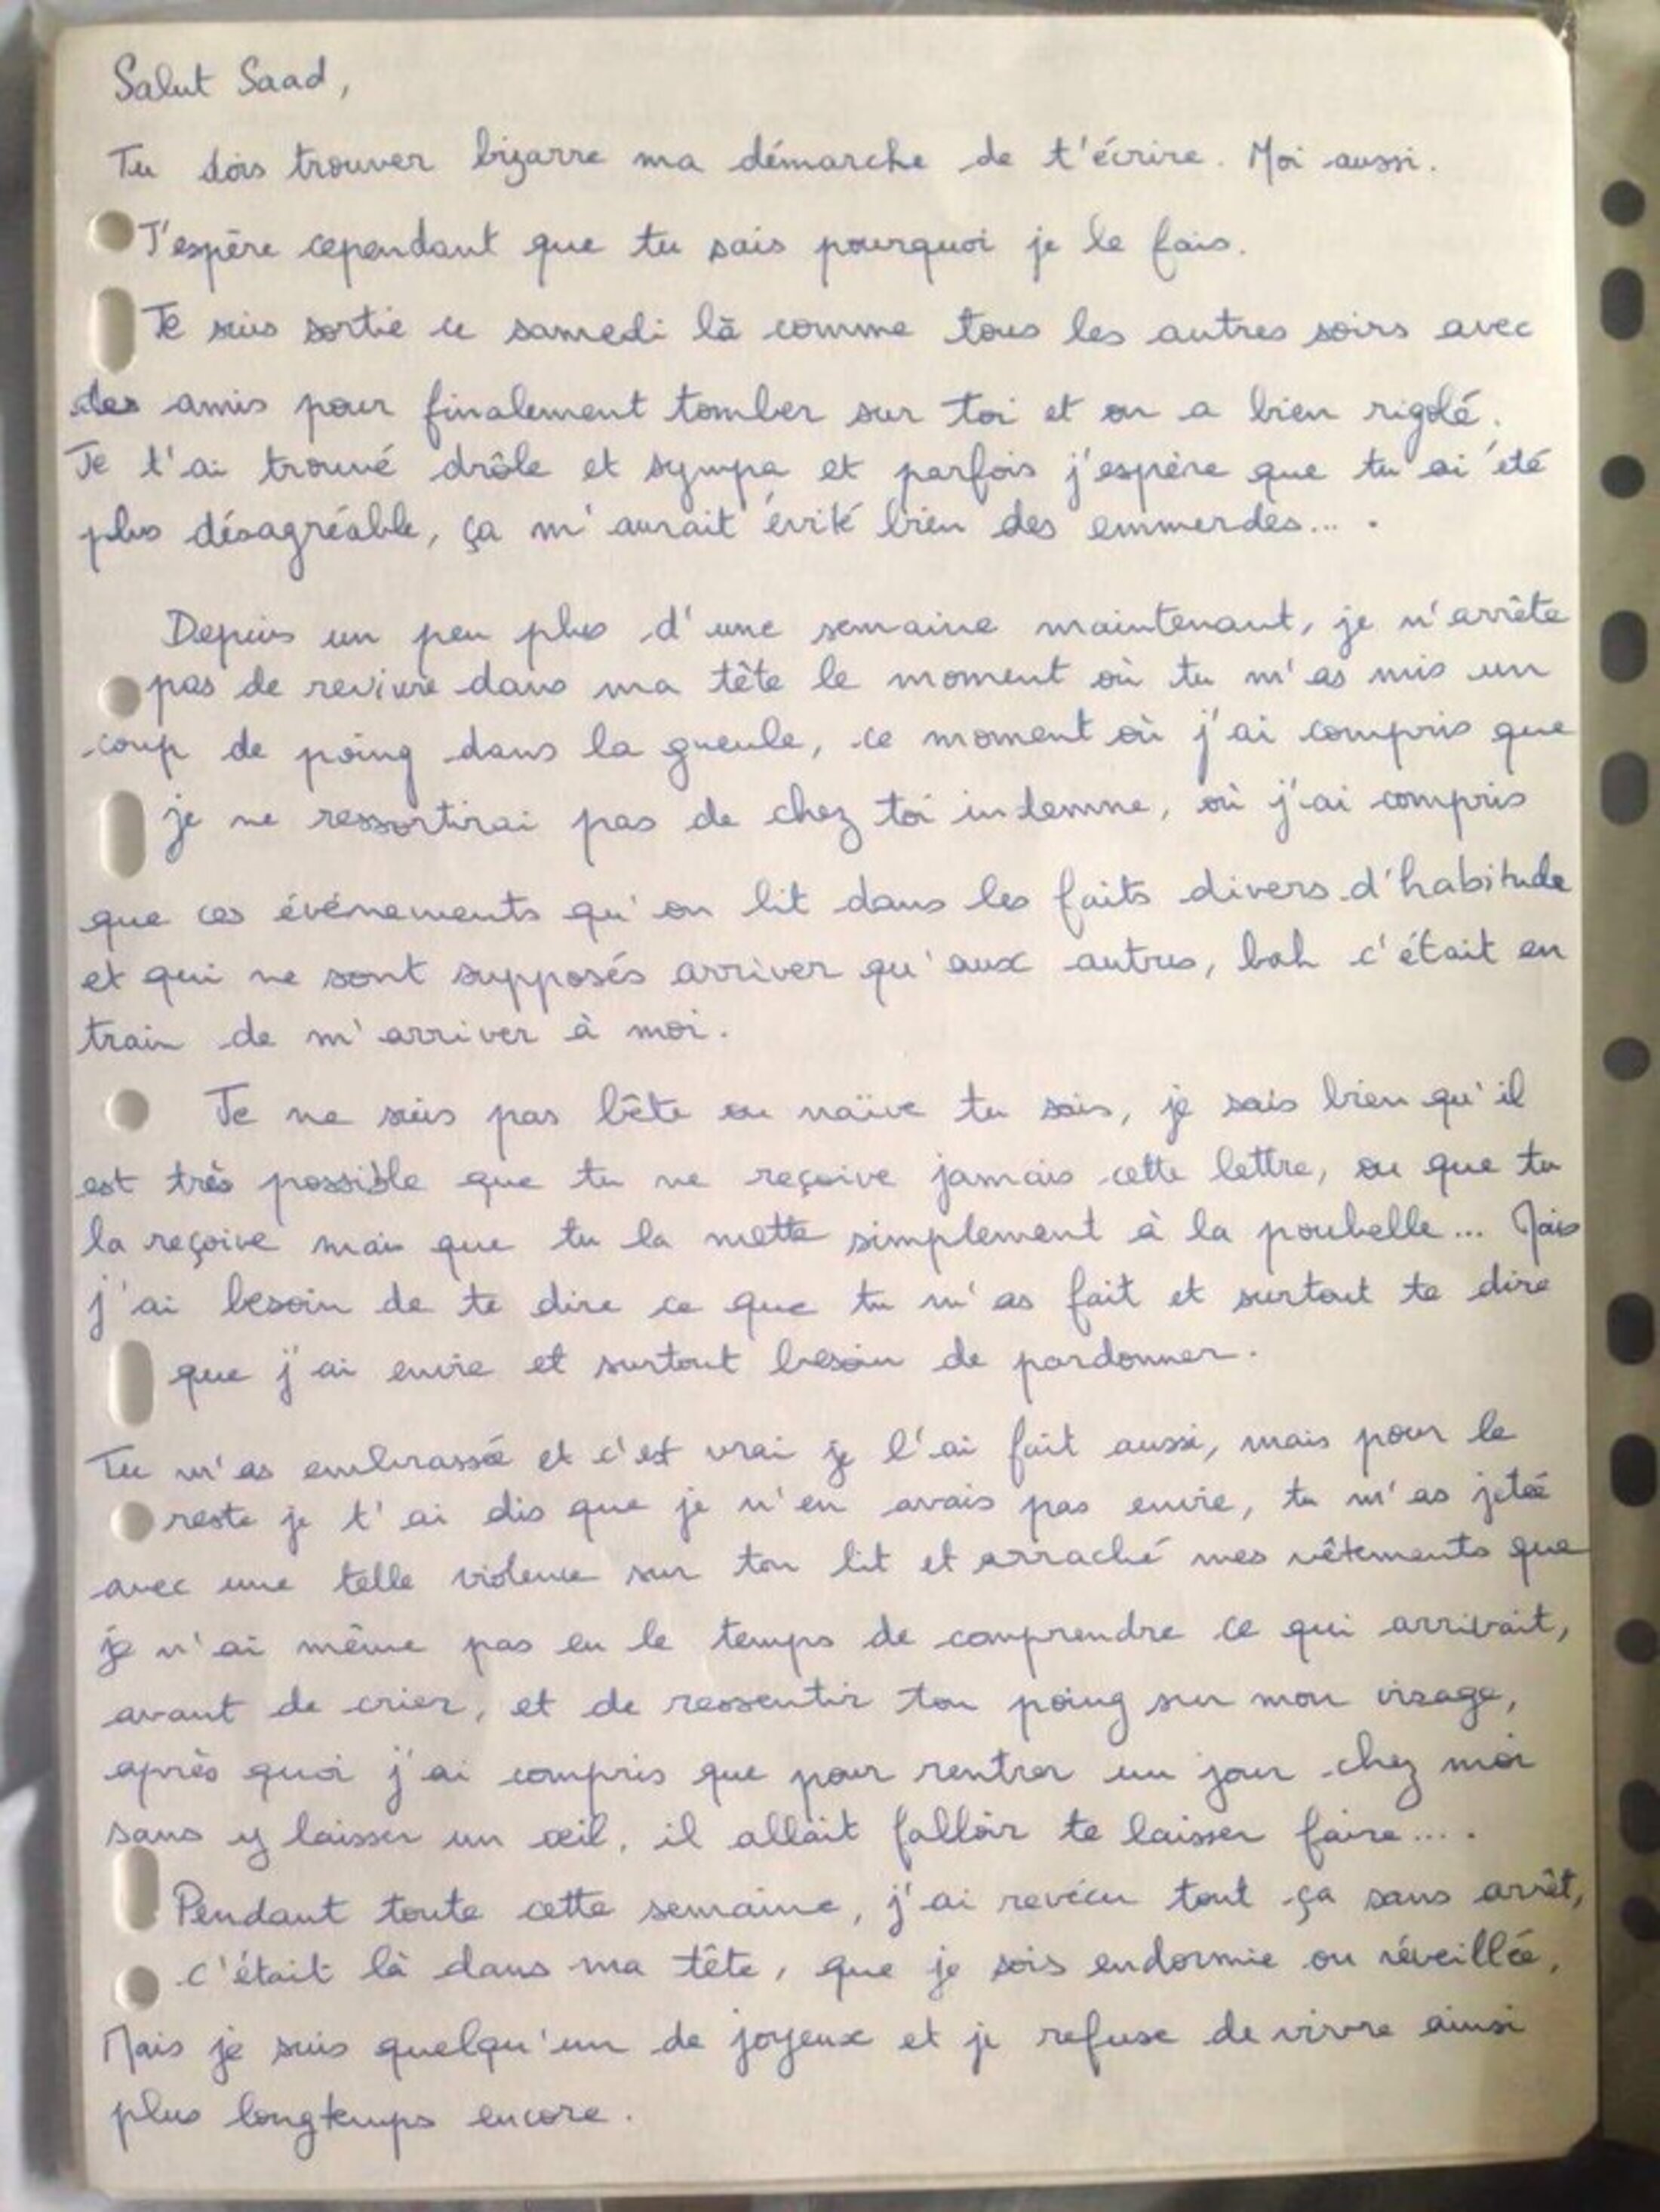 Salut Saad,
Tu dois trouver bizarre ma démarche de t'écrire. Moi aussi.
J'espère cependant que tu sais pourquoi je le fais.
Je suis sortie ce samedi là comme tous les autres soirs avec
des amis pour finalement tomber sur toi et on a bien rigolé.
Je t'ai trouvé drôle et sympa et parfois j'espère que tu ai été
plus désagréable, ça m'aurait évité bien des emmerdes... .
Depuis un peu plus d'une semaine maintenant, je n'arrête
pas de revivre dans ma tête le moment où tu m'as mis un
coup de poing dans la gueule, ce moment où j'ai compris que
je ne ressortirai pas de chez toi indemne, où j'ai compris
que ces événements qu'on lit dans les faits divers d'habitude
et qui ne sont supposés arriver qu'aux autres, bah c'était en
train de m'arriver à moi.
Je ne suis pas bête ou naïve tu sais, je sais bien qu'il
est très possible que tu ne reçoive jamais cette lettre, ou que tu
la reçoive mais que tu la mette simplement à la poubelle... Mais
j'ai besoin de te dire ce que tu m'as fait et surtout te dire
que j'ai envie et surtout besoin de pardonner.
Tu m'as embrassée et c'est vrai je l'ai fait aussi, mais pour le
reste je t'ai dis que je n'en avais pas envie, tu m'as jetée
avec une telle violence sur ton lit et arraché mes vêtements que
je n'ai même pas eu le temps de comprendre ce qui arrivait,
avant de crier, et de ressentir ton poing sur mon visage,
après quoi j'ai compris que pour rentrer un jour chez moi
sans y laisser un œil, il allait falloir te laisser faire... .
Pendant toute cette semaine, j'ai revécu tout ça sans arrêt,
c'était là dans ma tête, que je sois endormie ou réveillée.
Mais je suis quelqu'un de joyeux et je refuse de vivre ainsi
plus longtemps encore.